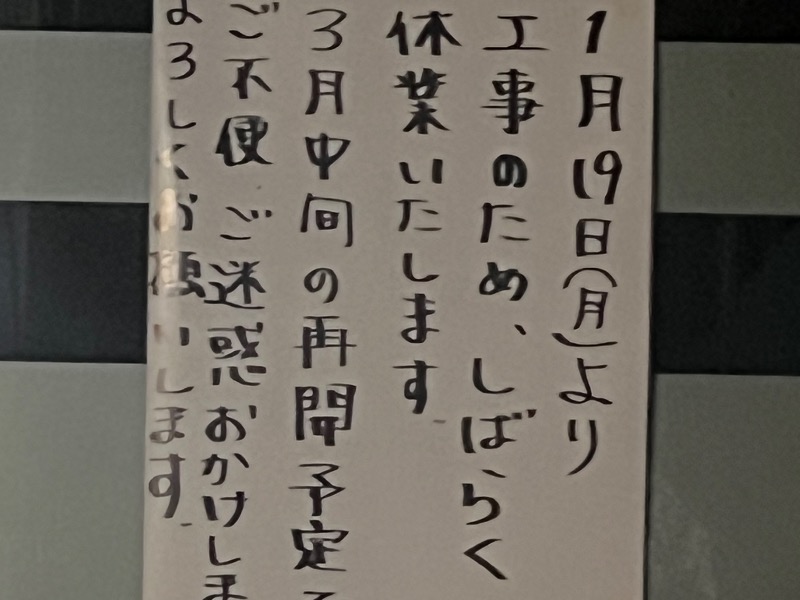 1月19日(月)より
工事のため、しばらく
休業いたします
3月中旬の再開予定
ご不便 ご迷惑おかけしま
よろしくお願いします